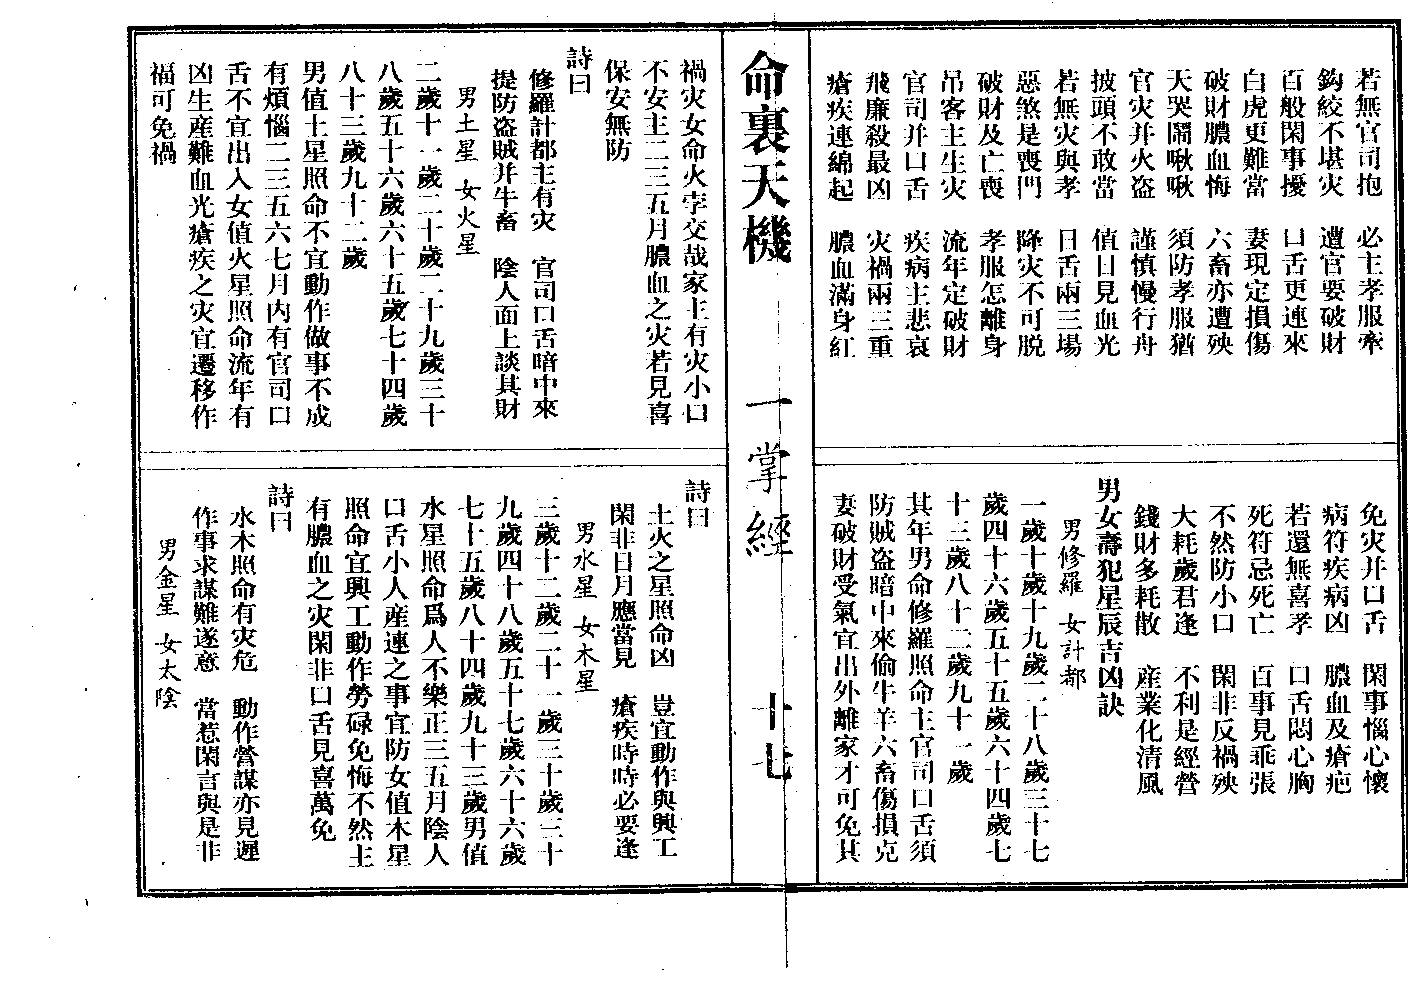 若無官司抱　必主孝服牽
鈎絞不堪灾　遭官要破財
百般閑事擾　口舌更連來
白虎更難當　妻現定損傷
破財膿血悔　六畜亦遭殃
天哭鬧啾啾　須防孝服猶
官灾并火盗　謹慎慢行舟
披頭不敢當　值日見血光
若無灾與孝　日舌兩三場
惡煞是喪門　降灾不可脱
破財及亡喪　孝服怎離身
吊客主生灾　流年定破財
官司并口舌　疾病主悲哀
飛廉殺最凶　灾禍兩三重
瘡疾連綿起　膿血滿身紅
免灾并口舌　閑事惱心懷
病符疾病凶　膿血及瘡疤
若還無喜孝　口舌悶心胸
死符忌死亡　百事見乖張
不然防小口　閑非反禍殃
大耗歲君逢　不利是經營
錢財多耗散　産業化清風
男女壽犯星辰吉凶訣
男修羅 女計都
一歲十歲十九歲二十八歲三十七
歲四十六歲五十五歲六十四歲七
十三歲八十二歲九十一歲
其年男命修羅照命主官司口舌須
防賊盗暗中來偷牛羊六畜傷損克
妻破財受氣宜出外離家才可免其
命裏天機 一掌經 十七
禍灾女命火孛交哉家主有灾小口
不安主二三五月膿血之灾若見喜
保安無防
詩曰
修羅計都主有灾　官司口舌暗中來
提防盗賊并牛畜　陰人面上談其財
男土星 女火星
二歲十一歲二十歲二十九歲三十
八歲五十六歲六十五歲七十四歲
八十三歲九十二歲
男值土星照命不宜動作做事不成
有煩惱二三五六七月内有官司口
舌不宜出入女值火星照命流年有
凶生産難血光瘡疾之灾宜遷移作
福可免禍
詩曰
土火之星照命凶　豈宜動作與興工
閑非日月應當見　瘡疾時時必要逢
男水星 女木星
三歲十二歲二十一歲三十歲三十
九歲四十八歲五十七歲六十六歲
七十五歲八十四歲九十三歲男值
水星照命爲人不樂正三五月陰人
口舌小人産連之事宜防女值木星
照命宜興工動作勞碌免悔不然主
有膿血之灾閑非口舌見喜萬免
詩曰
水木照命有灾危　動作營謀亦見遲
作事求謀難遂意　當惹閑言與是非
男金星 女太陰